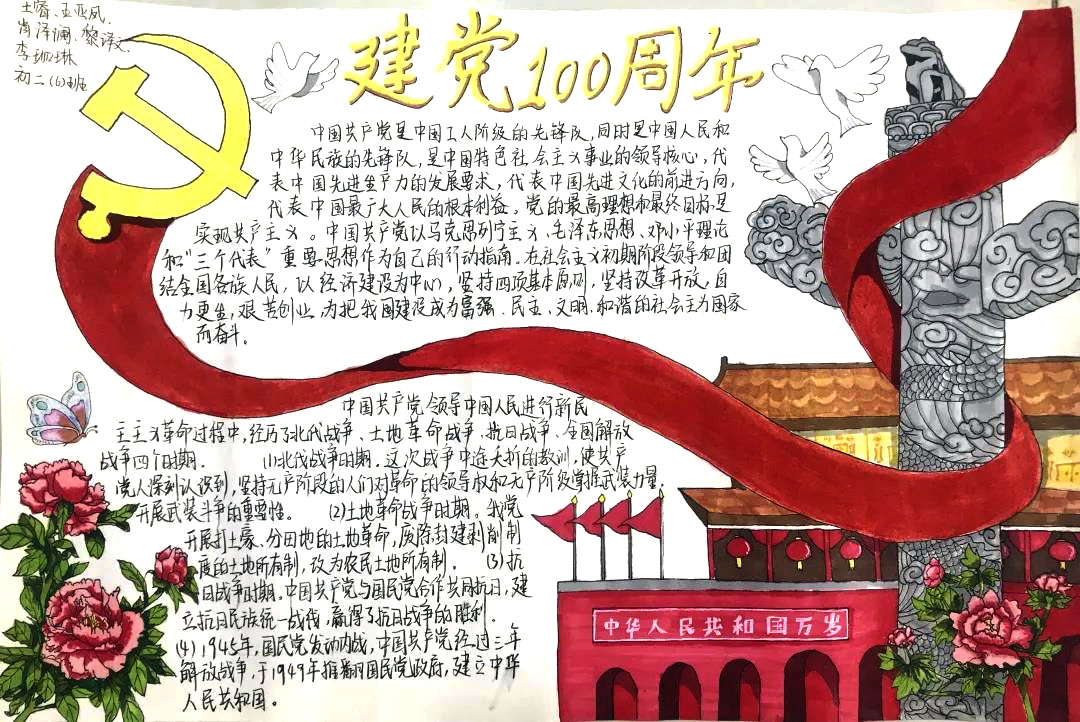 肖泽澜、黎译文
初二(6)班
建党100周年
中国共产党是中国工人阶级的先锋队,同时是中国人民和
中华民族的先锋队,是中国特色社会主义事业的领导核心,代
表中国先进生产力的发展要求,代表中国先进文化的前进方向,
代表中国最广大人民的根本利益。党的最高理想和最终目标是
实现共产主义。中国共产党以马克思列宁主义、毛泽东思想、邓小平理论
和“三个代表”重要思想作为自己的行动指南.在社会主义初期阶段领导和团
结全国各族人民,以经济建设为中心,坚持四项基本原则,坚持改革开放,自
力更生,艰苦创业,为把我国建设成为富强、民主、文明、和谐的社会主力国家
而奋斗。
中国共产党领导中国人民进行新民
主主义革命过程中,经历了北伐战争、土地革命战争、抗日战争、全国解放
战争四个时期. (1)北伐战争时期.这次战争中途夭折的教训,使共产
党人深刻认识到,坚持无产阶段的人们对革命的领导权和无产阶级掌握武装力量.
开展武装斗争的重要性。 (2)土地革命战争时期.我党
开展打土豪、分田地的土地革命,废除封建剥削制
度的土地所有制,改为农民土地所有制. (3)抗
日战争时期.中国共产党与国民党合作共同抗日,建
立抗日民族统一战线.赢得了抗日战争的胜利.
(4)1945年,国民党发动内战,中国共产党经过三年
解放战争,于1949年推翻国民党政府,建立中华
人民共和国。
中华人民共和国万岁